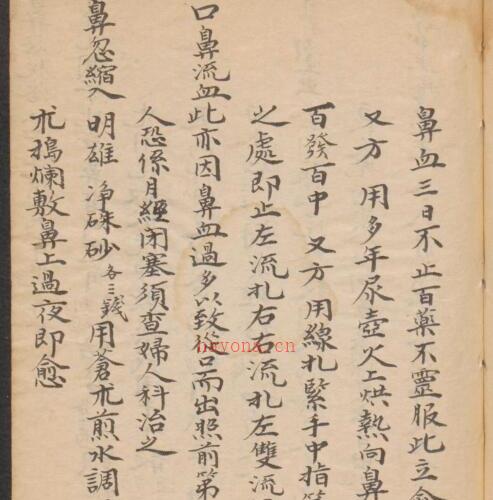 鼻血三日不止百藥不靈服此立
又方 用多年尿壺火上烘熱向鼻
百發百中 又方 用線扎緊手中指第
之處即止左流扎右右流扎左雙流
口鼻流血此亦因鼻血過多以致從口而出照前第
人恐係月經閉塞須查婦人科治之
鼻忽縮入 明雄 净硃砂各三錢用蒼朮煎水調
朮搗爛敷鼻上過夜即愈
hxyona.cn